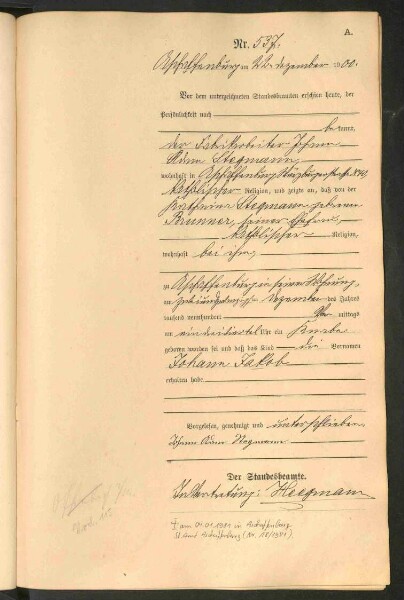 A.
Nr. 537.
Aschaffenburg am 22. Dezember 1900.
Vor dem unterzeichneten Standesbeamten erschien heute, der
Persönlichkeit nach
bekannt,
der Fabrikarbeiter Johann
Adam Stegmann,
wohnhaft in Aschaffenburg, Würzburgerstraße
katholischer Religion, und zeigte an, daß von der
Katharina Stegmann, geborenen
Brunner, seiner Ehefrau,
katholischer Religion,
wohnhaft bei ihm,
zu Aschaffenburg in seiner Wohnung,
am Dezember des Jahres
tausend neunhundert mittags
um ein dreiviertel Uhr ein Knabe
geboren worden sei und daß das Kind die Vornamen
Johann Jakob
erhalten habe.
Vorgelesen, genehmigt und unterschrieben
Johann Adam Stegmann
Der Standesbeamte.
In Vertretung: Heegmann